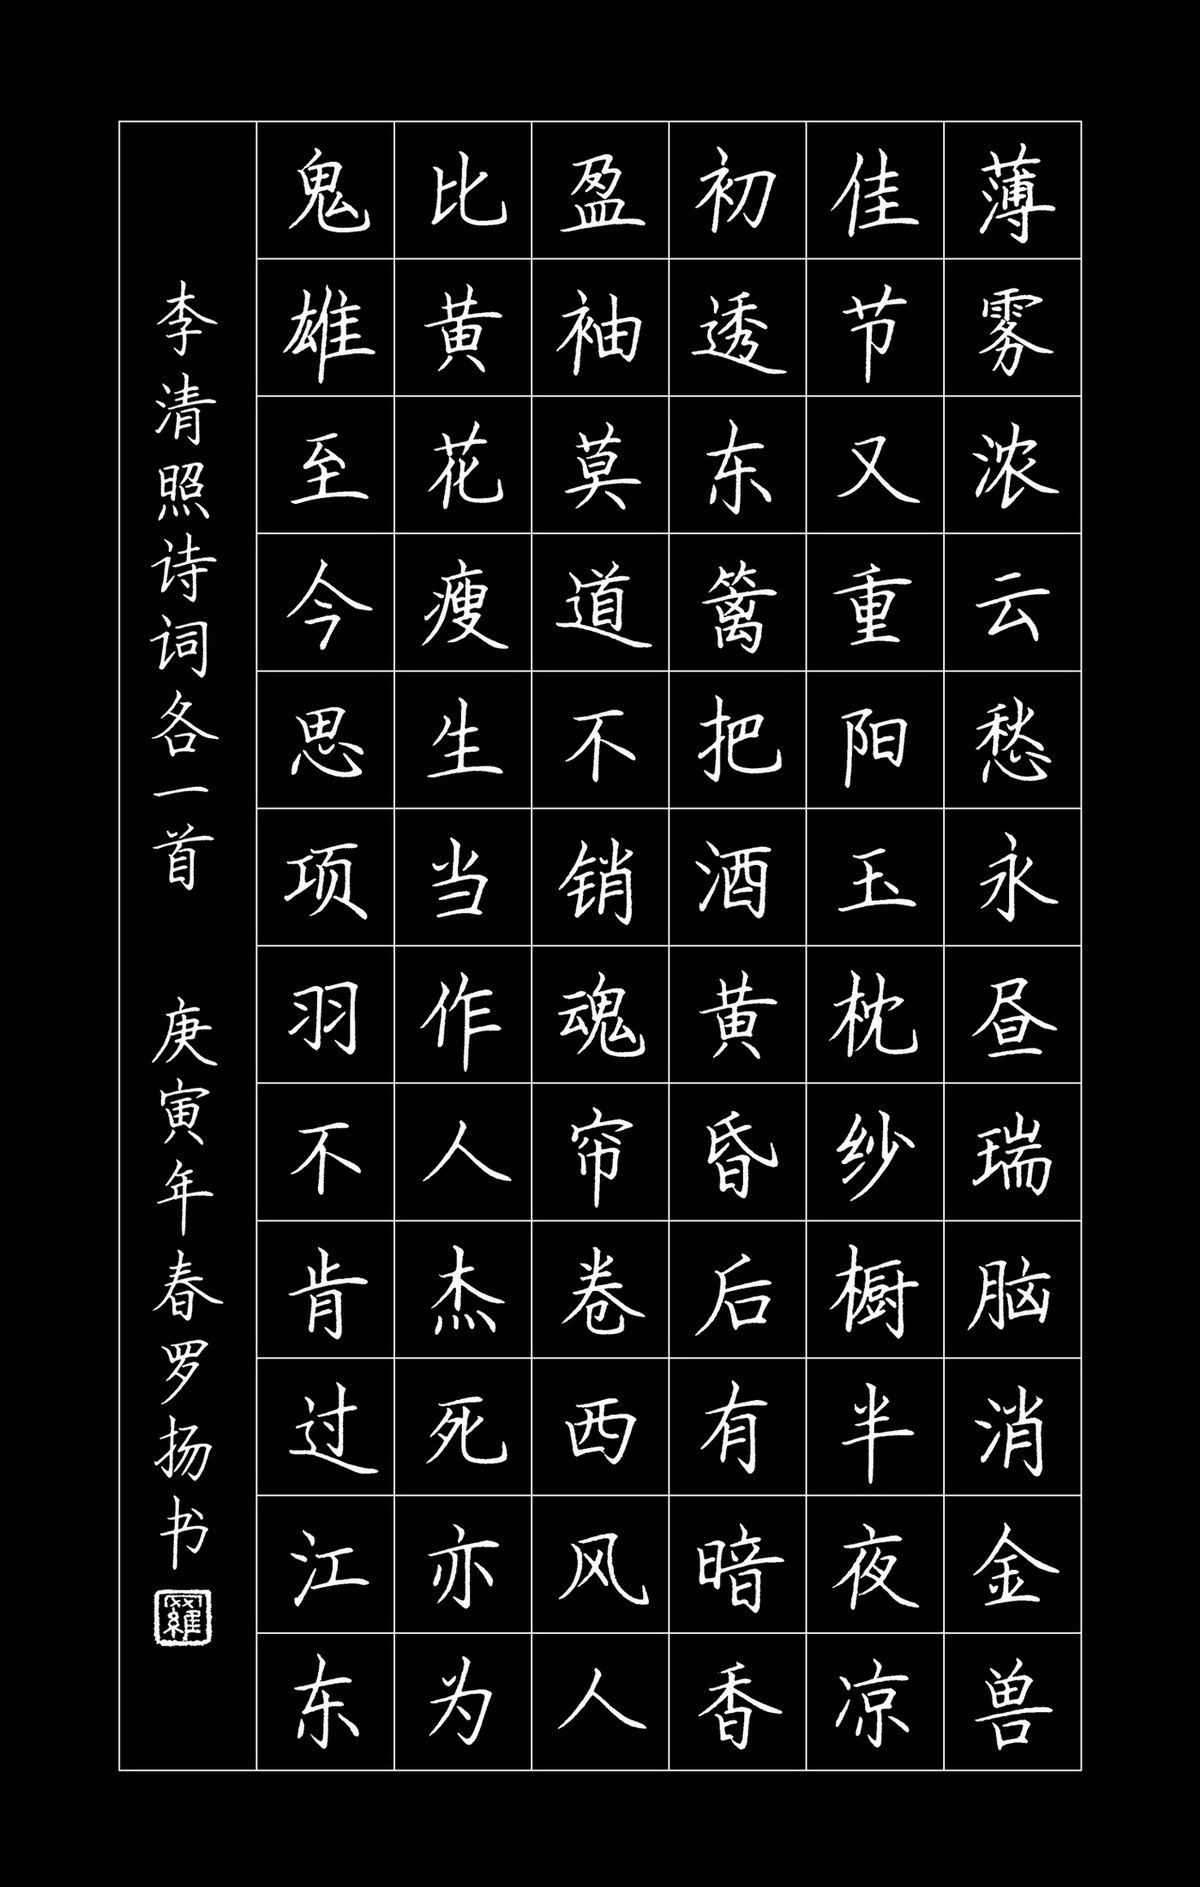 薄雾浓云愁永昼瑞脑消金兽
佳节又重阳玉枕纱橱半夜凉
初透东篱把酒黄昏后有暗香
盈袖莫道不销魂帘卷西风人
比黄花瘦生当作人杰死亦为
鬼雄至今思项羽不肯过江东
李清照诗词各一首 庚寅年春罗扬书
羅